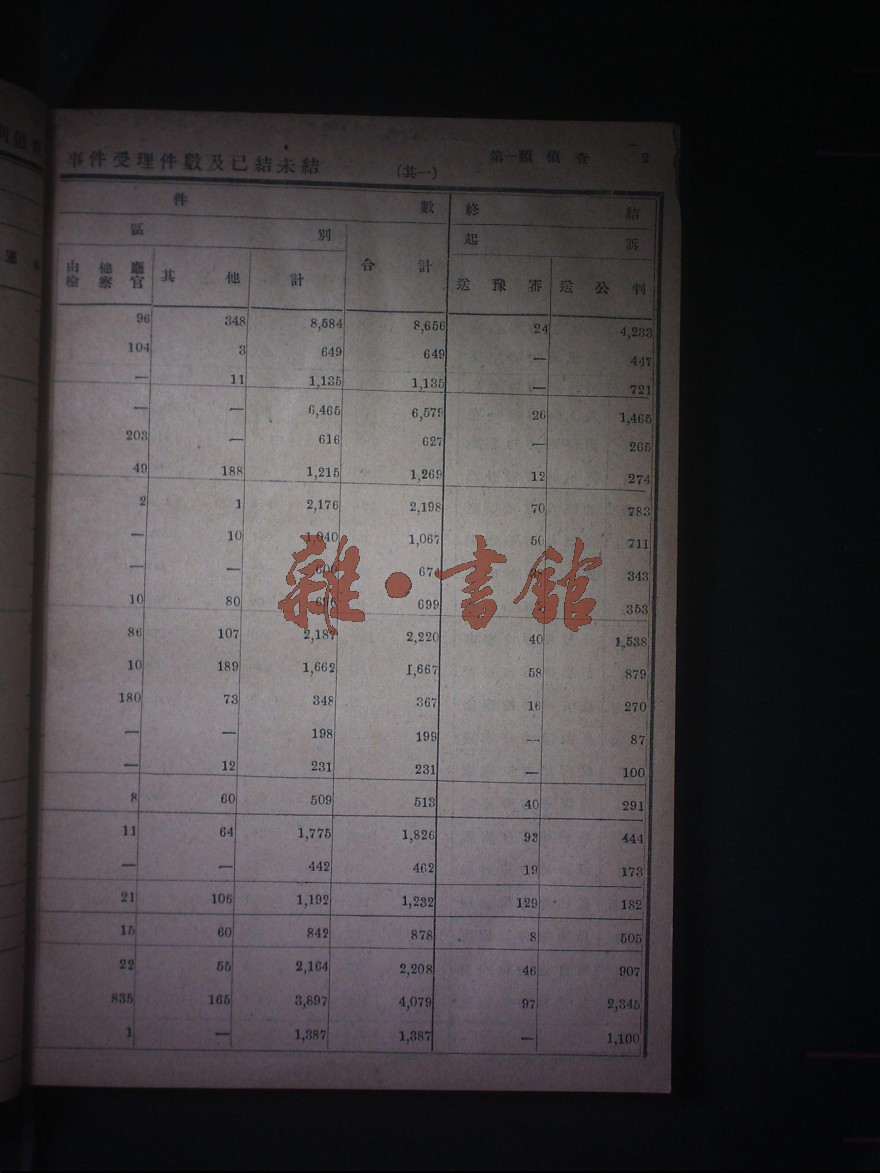 事件受理件數及已結未結 (其一) 第一類 偵查 2
件 數 終 結
區 別 合 計 起 訴
由他廳檢察官 其 他 計 送豫審 送公判
96 348 8,584 8,656 24 4,233
104 3 649 649 — 447
— 11 1,135 1,135 — 721
— — 6,465 6,579 26 1,465
203 — 616 627 — 265
49 188 1,215 1,269 12 274
2 1 2,176 2,198 70 783
— 10 1,040 1,067 50 711
— — 343
10 80 699 353
86 107 2,187 2,220 40 1,538
10 189 1,662 1,667 58 879
180 73 348 367 16 270
— — 198 199 — 87
— 12 231 231 — 100
8 60 509 513 40 291
11 64 1,775 1,826 93 444
— — 442 462 19 173
21 106 1,192 1,232 129 182
15 60 842 878 8 505
22 55 2,164 2,208 46 907
835 165 3,897 4,079 97 2,345
1 — 1,387 1,387 — 1,100
雜·書館